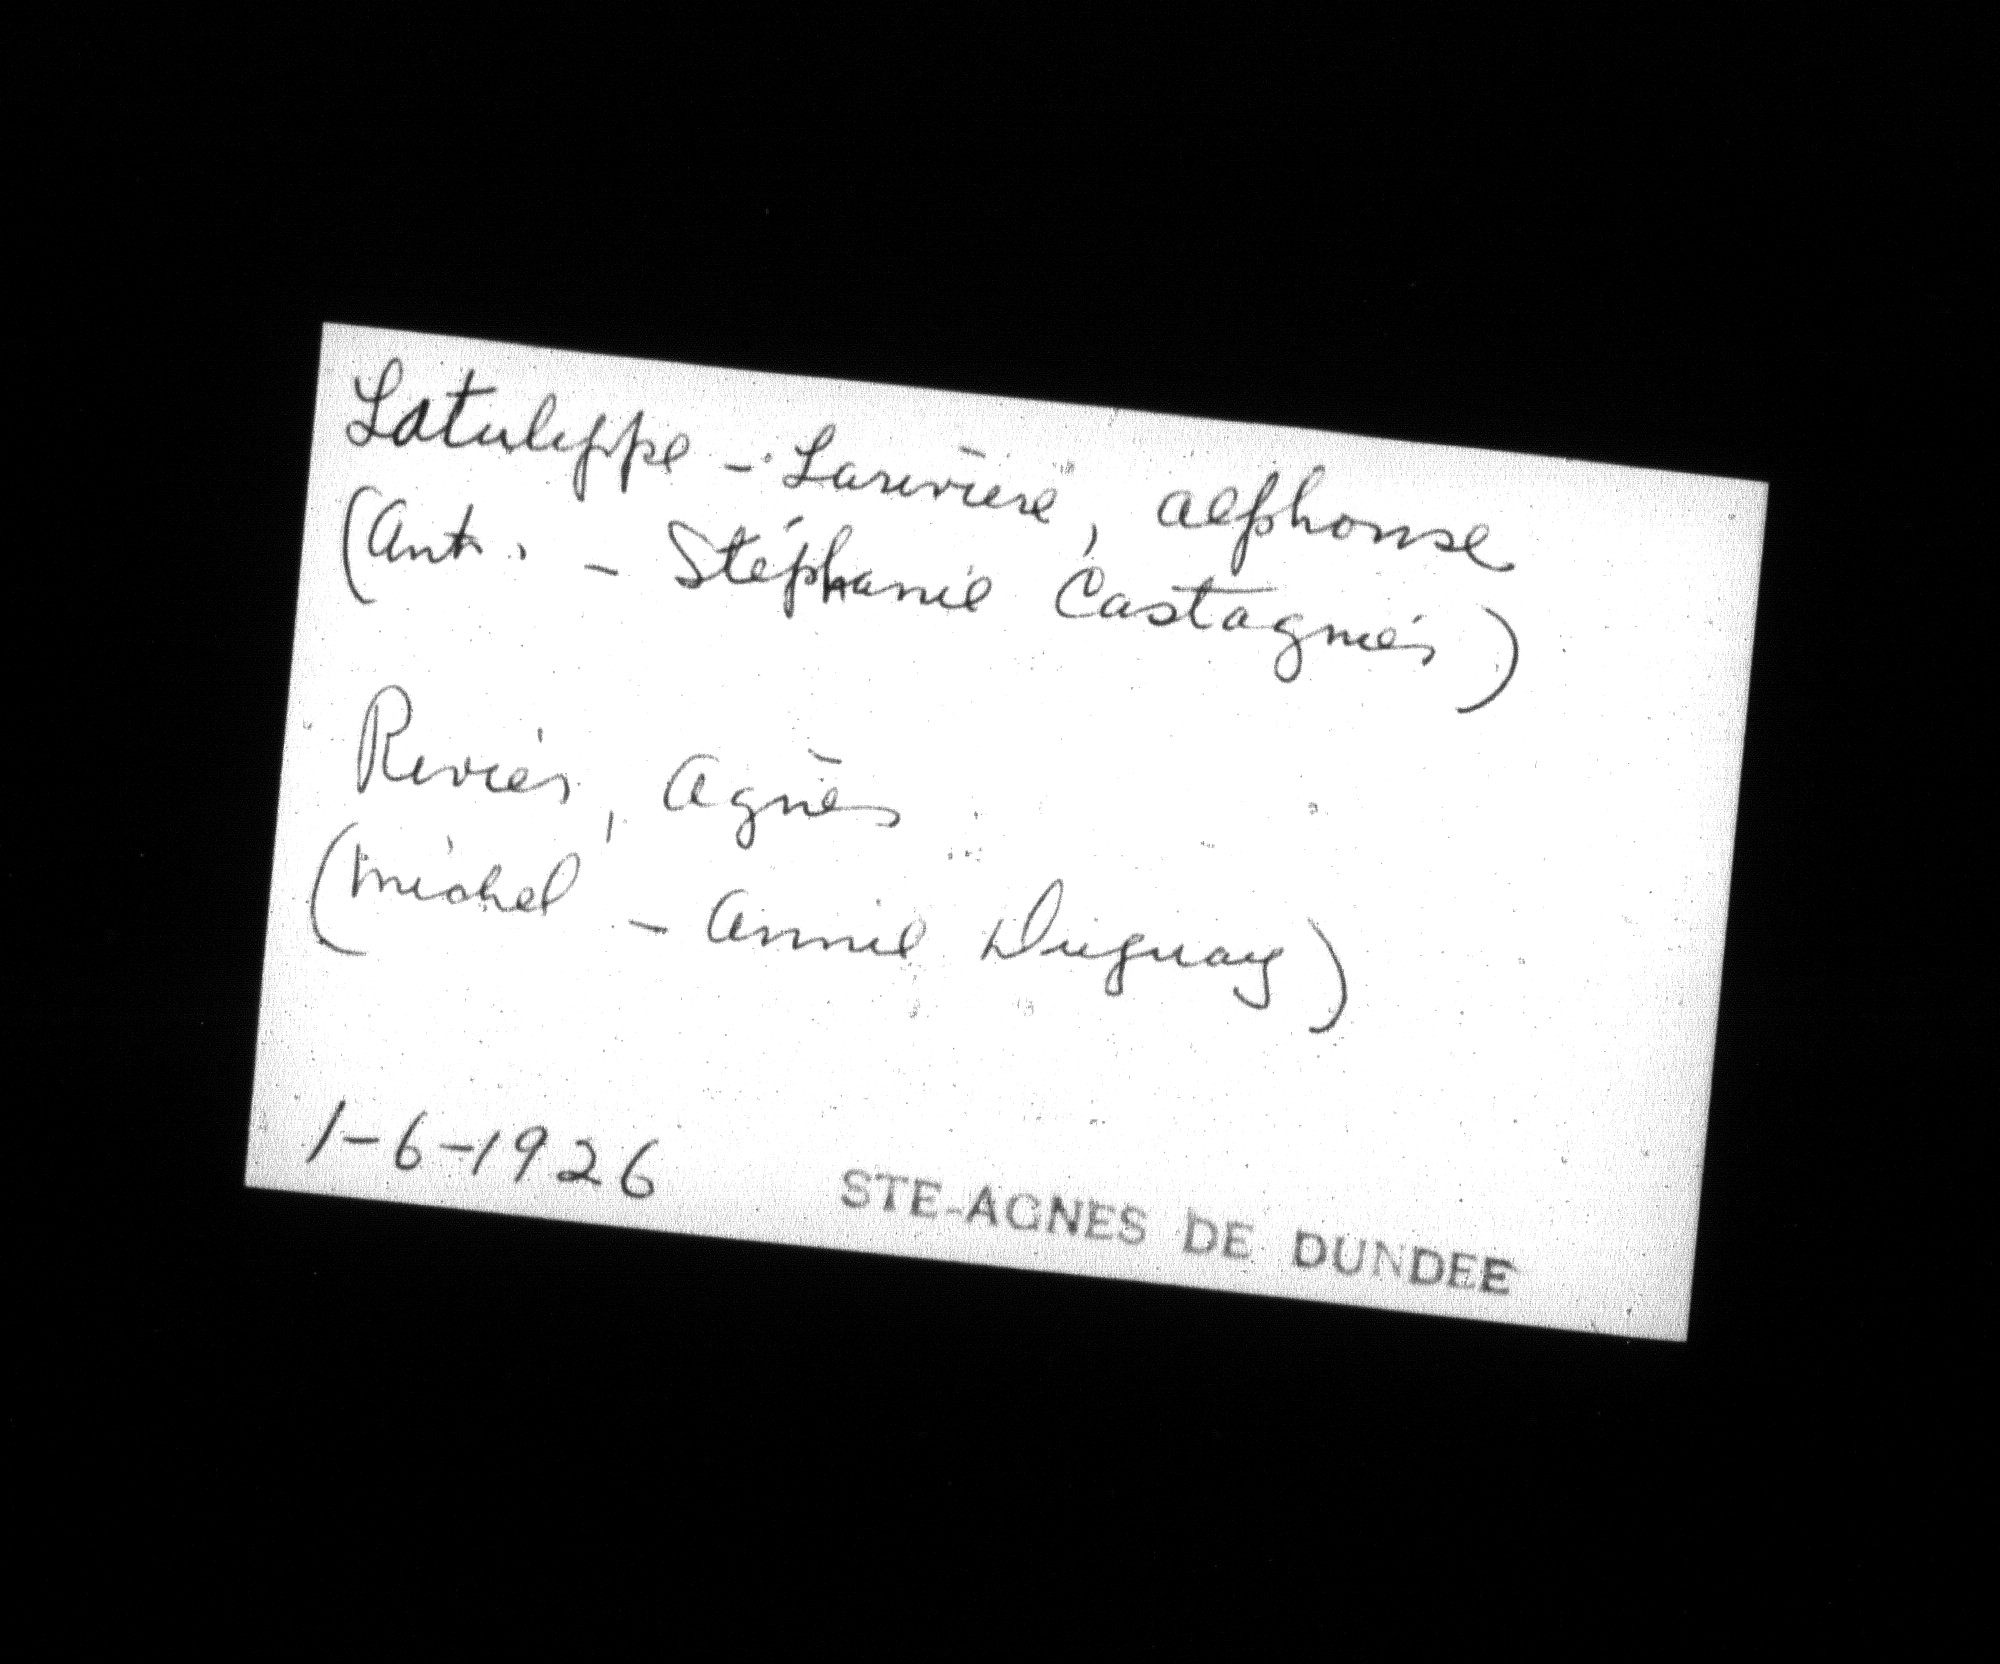 Latulippe - Larivière, Alphonse
(Ant. - Stéphanie Castagnés)
Reviers, Agnès
(Michel - Annie Duguay)
1-6-1926
STE-AGNES DE DUNDEE